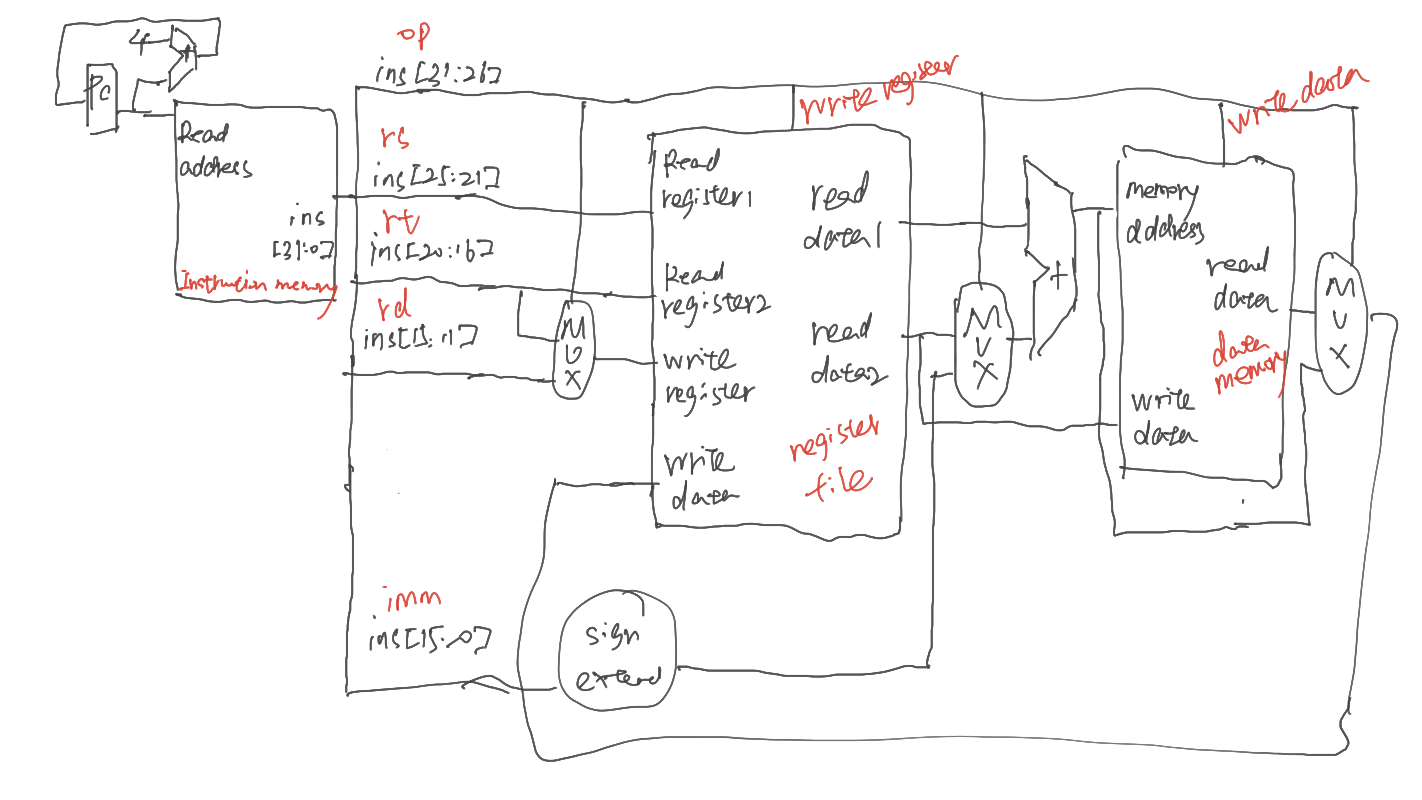 4
+
Pc
Read
address
ins
[31:0]
Instruction memory
op
ins[31:26]
rs
ins[25:21]
rt
ins[20:16]
rd
ins[15:11]
MUX
imm
ins[15:0]
sign
extend
write register
Read
register1
Read
register2
write
register
write
data
read
data1
read
data2
register
file
MUX
+
write data
memory
address
read
data
data
memory
write
data
MUX